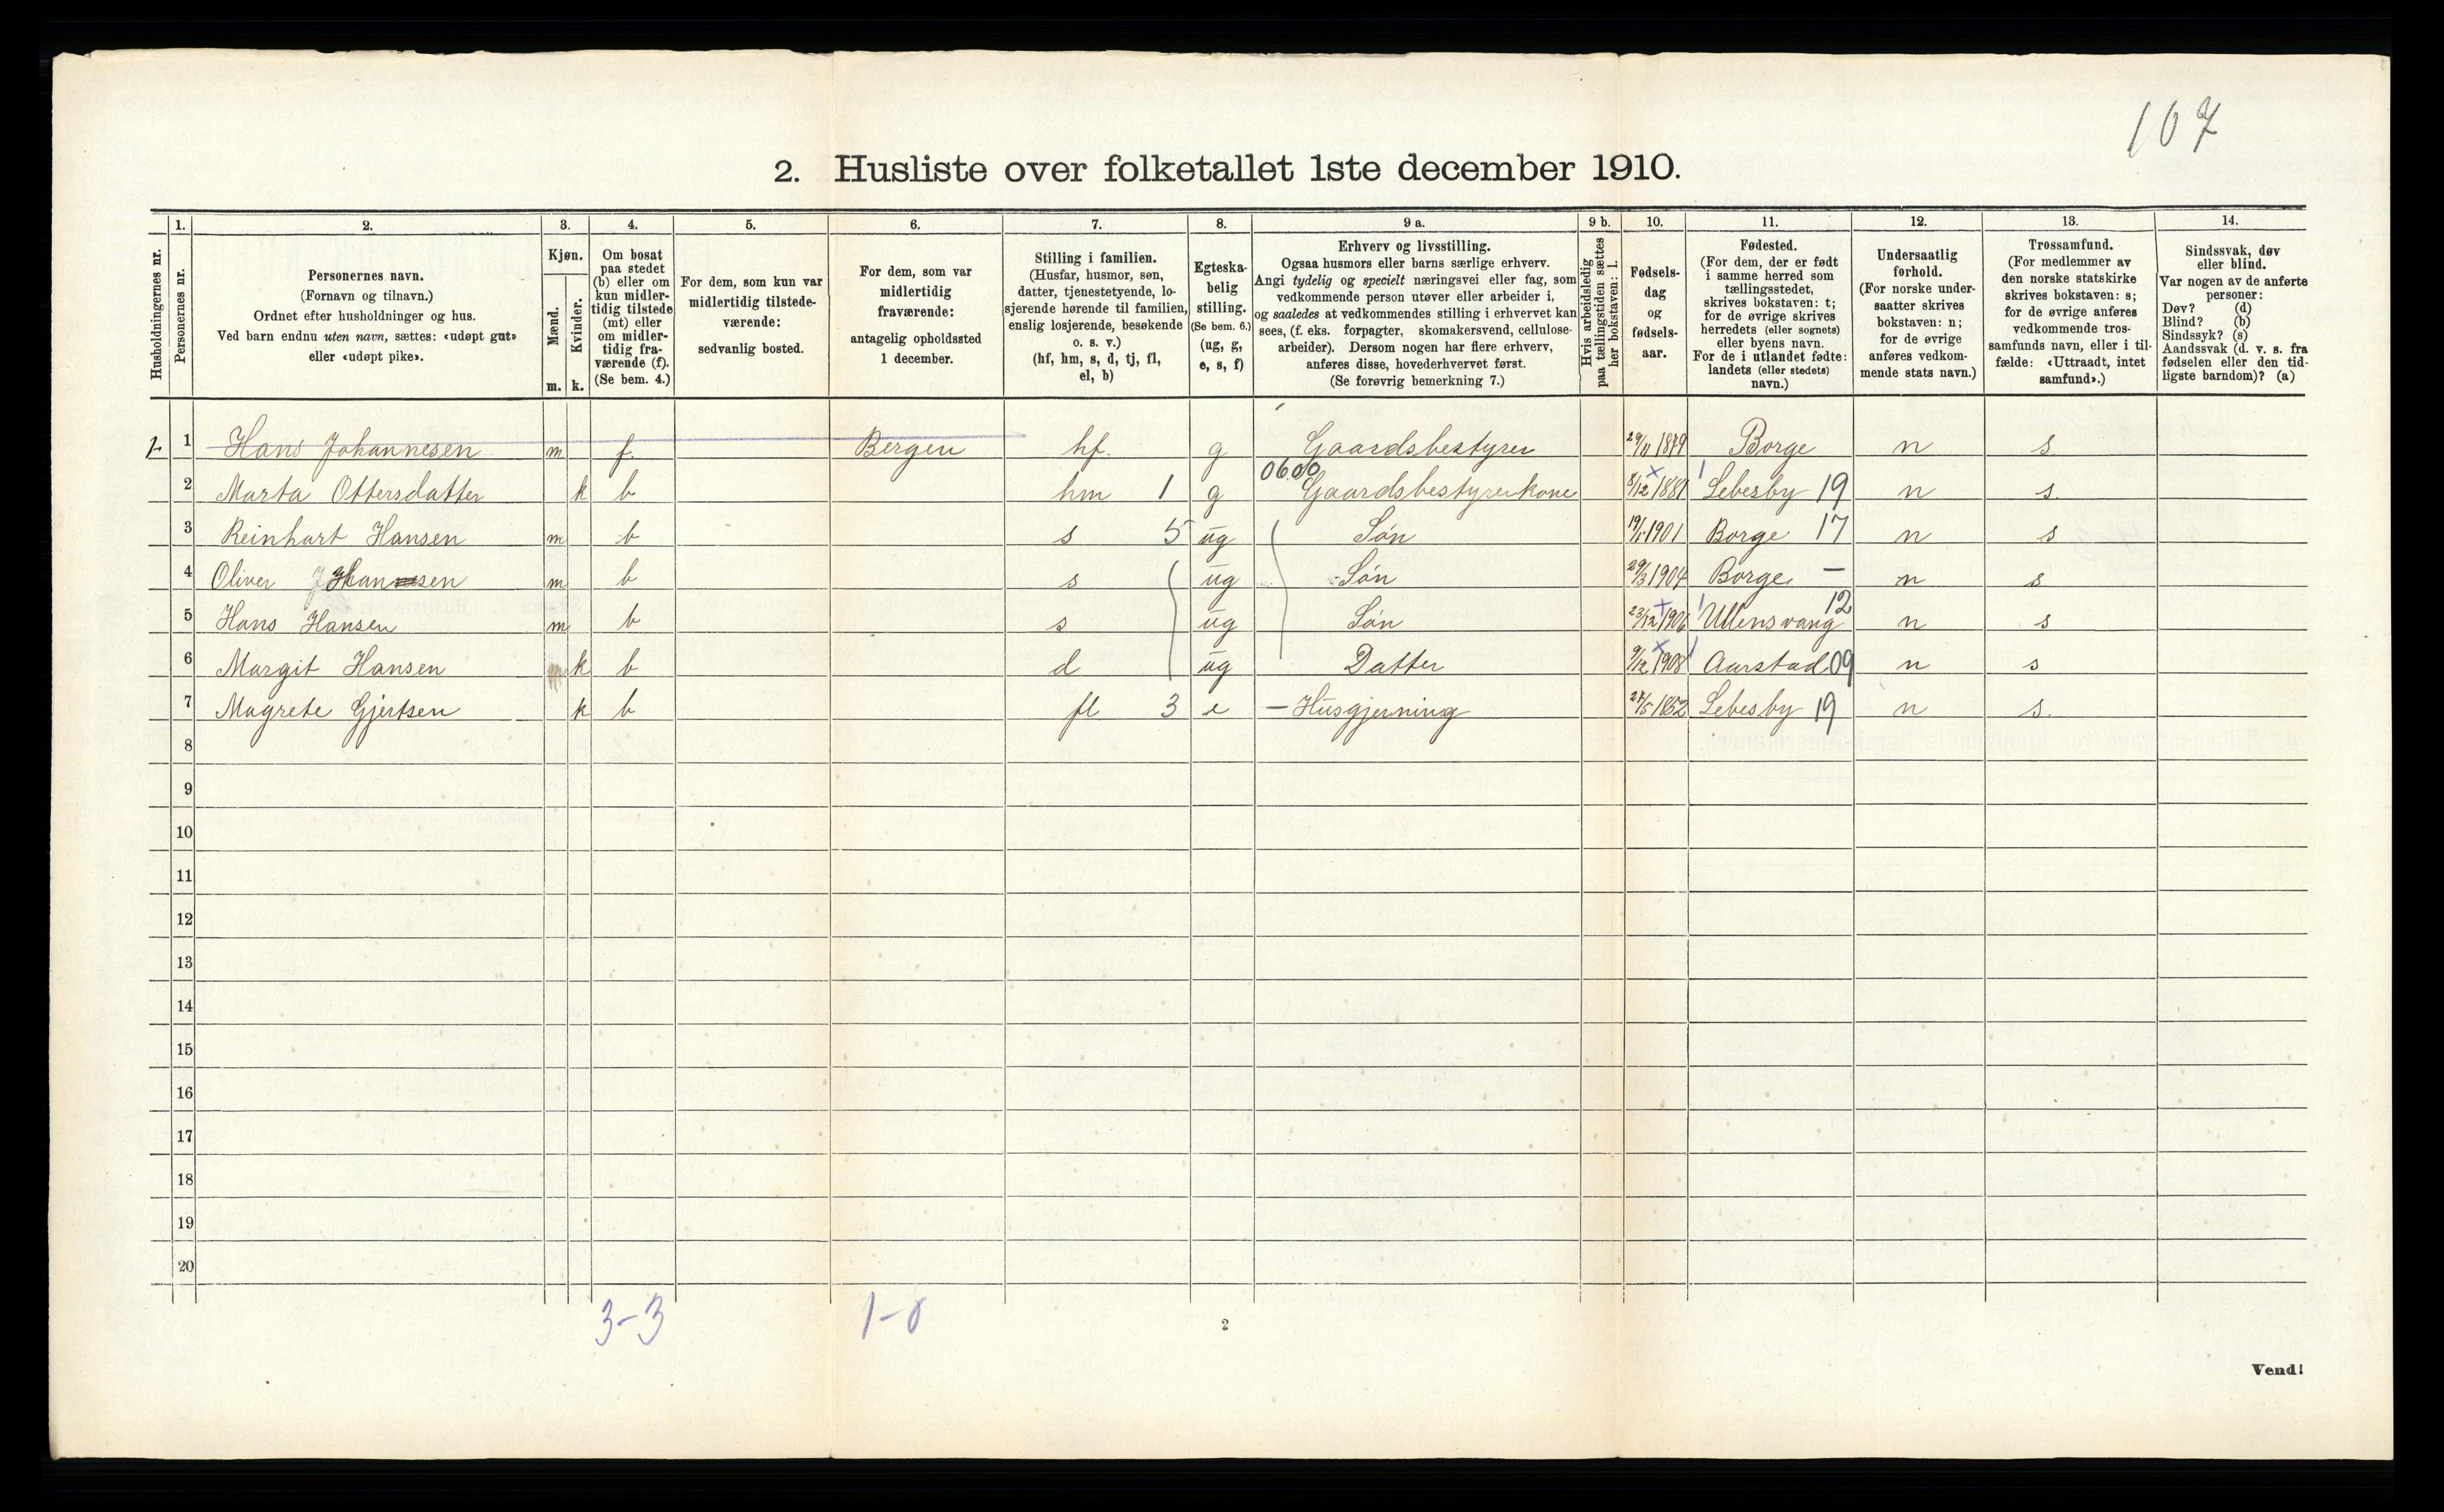 107
2. Husliste over folketallet 1ste december 1910.
Husholdningernes nr.
1.
Personernes nr.
2.
Personernes navn.
(Fornavn og tilnavn.)
Ordnet efter husholdninger og hus.
Ved barn endnu uten navn, sættes: «udøpt gut»
eller «udøpt pike».
3.
Kjøn.
Mænd.
m.
Kvinder.
k.
4.
Om bosat
paa stedet
(b) eller om
kun midler-
tidig tilstede
(mt) eller
om midler-
tidig fra-
værende (f).
(Se bem. 4.)
5.
For dem, som kun var
midlertidig tilstede-
værende:
sedvanlig bosted.
6.
For dem, som var
midlertidig
fraværende:
antagelig opholdssted
1 december.
7.
Stilling i familien.
(Husfar, husmor, søn,
datter, tjenestetyende, lo-
sjerende hørende til familien,
enslig losjerende, besøkende
o. s. v.)
(hf, hm, s, d, tj, fl,
el, b)
8.
Egteska-
belig
stilling.
(Se bem. 6.)
(ug, g,
e, s, f)
9 a.
Erhverv og livsstilling.
Ogsaa husmors eller barns særlige erhverv.
Angi tydelig og specielt næringsvei eller fag, som
vedkommende person utøver eller arbeider i,
og saaledes at vedkommendes stilling i erhvervet kan
sees, (f. eks. forpagter, skomakersvend, cellulose-
arbeider). Dersom nogen har flere erhverv,
anføres disse, hovederhvervet først.
(Se forøvrig bemerkning 7.)
9 b.
Hvis arbeidsledig
paa tællingstiden sættes
her bokstaven: l.
10.
Fødsels-
dag
og
fødsels-
aar.
11.
Fødested.
(For dem, der er født
i samme herred som
tællingsstedet,
skrives bokstaven: t;
for de øvrige skrives
herredets (eller sognets)
eller byens navn.
For de i utlandet fødte:
landets (eller stedets)
navn.)
12.
Undersaatlig
forhold.
(For norske under-
saatter skrives
bokstaven: n;
for de øvrige
anføres vedkom-
mende stats navn.)
13.
Trossamfund.
(For medlemmer av
den norske statskirke
skrives bokstaven: s;
for de øvrige anføres
vedkommende tros-
samfunds navn, eller i til-
fælde: «Uttraadt, intet
samfund».)
14.
Sindssvak, døv
eller blind.
Var nogen av de anførte
personer:
Døv? (d)
Blind? (b)
Sindssyk? (s)
Aandssvak (d. v. s. fra
fødselen eller den tid-
ligste barndom)? (a)
1 Hans Johannesen m f. Bergen hf. g Gaardsbestyrer 29/11 1879 Borge n s
2 Marta Ottersdatter k b hm 1 g 0600 Gaardsbestyrerkone 8/12 1881 Lebesby 19 n s.
3 Reinhart Hansen m b s 5 ug Søn 1901 Borge 17 n s
4 Oliver Hansen m b s ug Søn 29/3 1904 Borge — n s
5 Hans Hansen m b s ug Søn 23/12 1906 Ullensvang 12 n s
6 Margit Hansen k b d ug Datter 9/12 1908 Aarstad 09 n s
7 Magrete Gjertsen k b fl 3 e — Husgjerning 1852 Lebesby 19 n s.
8
9
10
11
12
13
14
15
16
17
18
19
20
3-3 1-0
2
Vend!